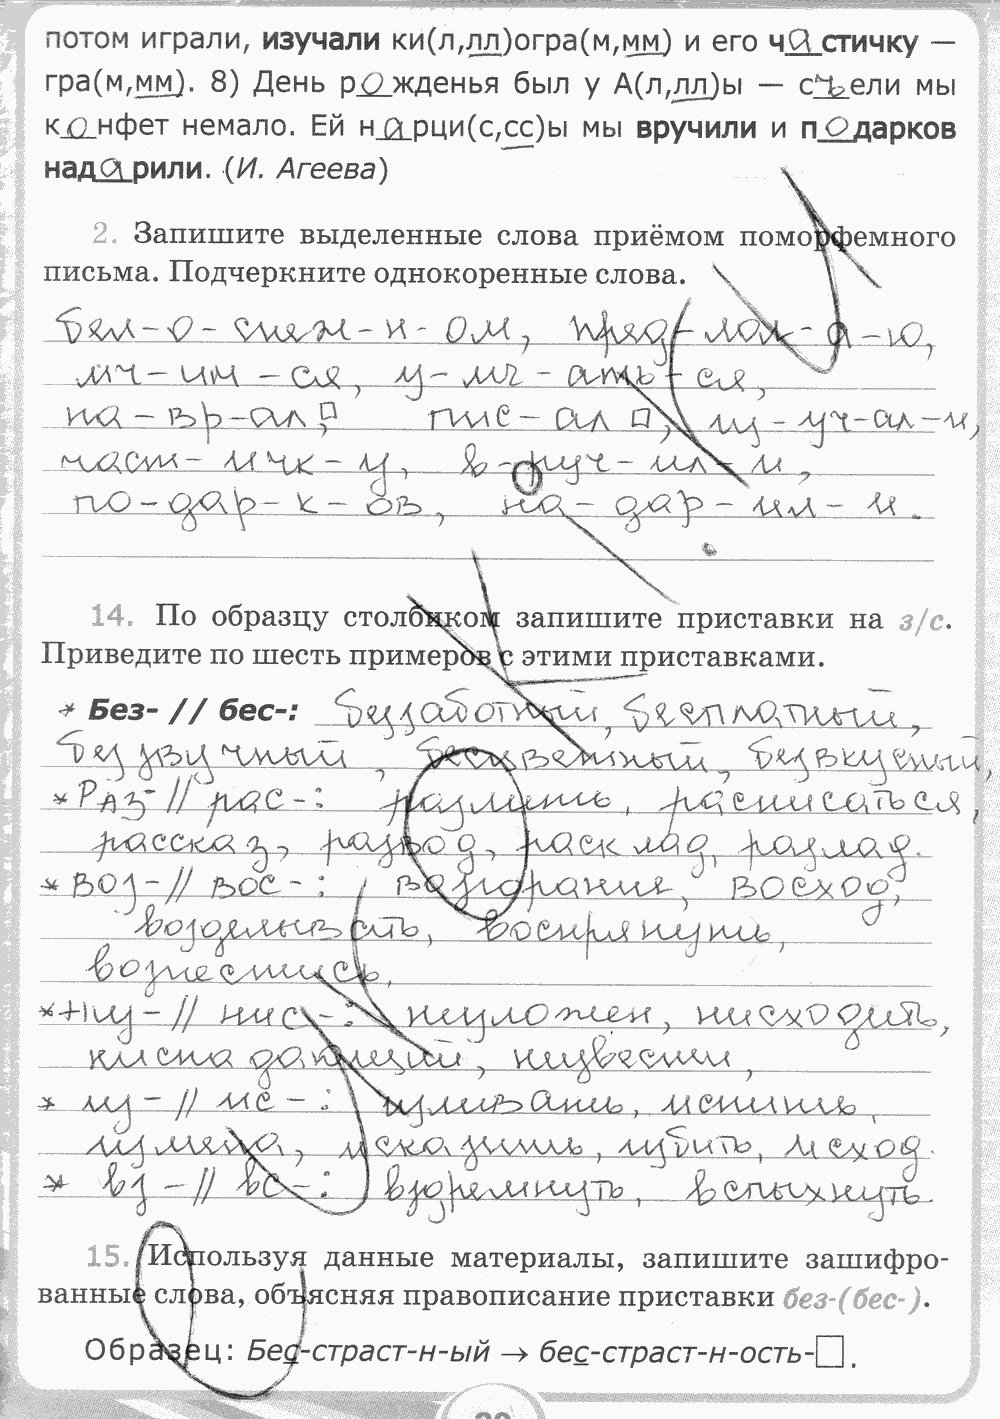 потом играли, изучали ки(л,лл)огра(м,мм) и его частичку —
гра(м,мм). 8) День рожденья был у А(л,лл)ы — съели мы
конфет немало. Ей нарци(с,сс)ы мы вручили и подарков
надарили. (И. Агеева)
2. Запишите выделенные слова приёмом поморфемного
письма. Подчеркните однокоренные слова.
бел-о-снеж-н-ом, пред-лаг-а-ю,
мч-им-ся, у-мч-ать-ся,
на-вр-ал□, пис-ал□, из-уч-ал-и,
част-ичк-у, в-руч-ил-и,
по-дар-к-ов, на-дар-ил-и.
14. По образцу столбиком запишите приставки на з/с.
Приведите по шесть примеров с этими приставками.
* Без- // бес-: беззаботный, бесплатный,
беззвучный, бесцветный, безвкусный,
* Раз- // рас-: разлить, расписаться,
рассказ, развод, расклад, разлад.
* воз- // вос-: возгорание, восход,
возделывать, воспрянуть,
вознестись,
* низ- // нис-: низложен, нисходить,
ниспадающий, низвести,
* из- // ис-: изливать, испить,
измена, исказить, избить, исход.
* вз- // вс-: вздремнуть, вспыхнуть
15. Используя данные материалы, запишите зашифро-
ванные слова, объясняя правописание приставки без-(бес-).
Образец: Бес-страст-н-ый → бес-страст-н-ость-□.